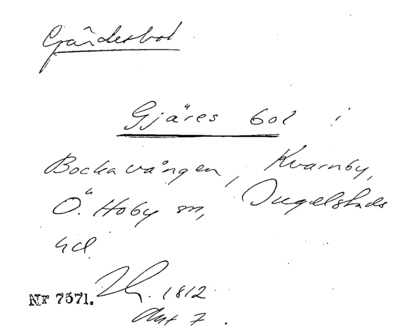 Gjärdesbol
Gjäres bol i
Bockavången, Kvarnby,
Ö. Hoby sn, Ingelstads
hd.
Lh. 1812
Akt 7.
Nr 7571.